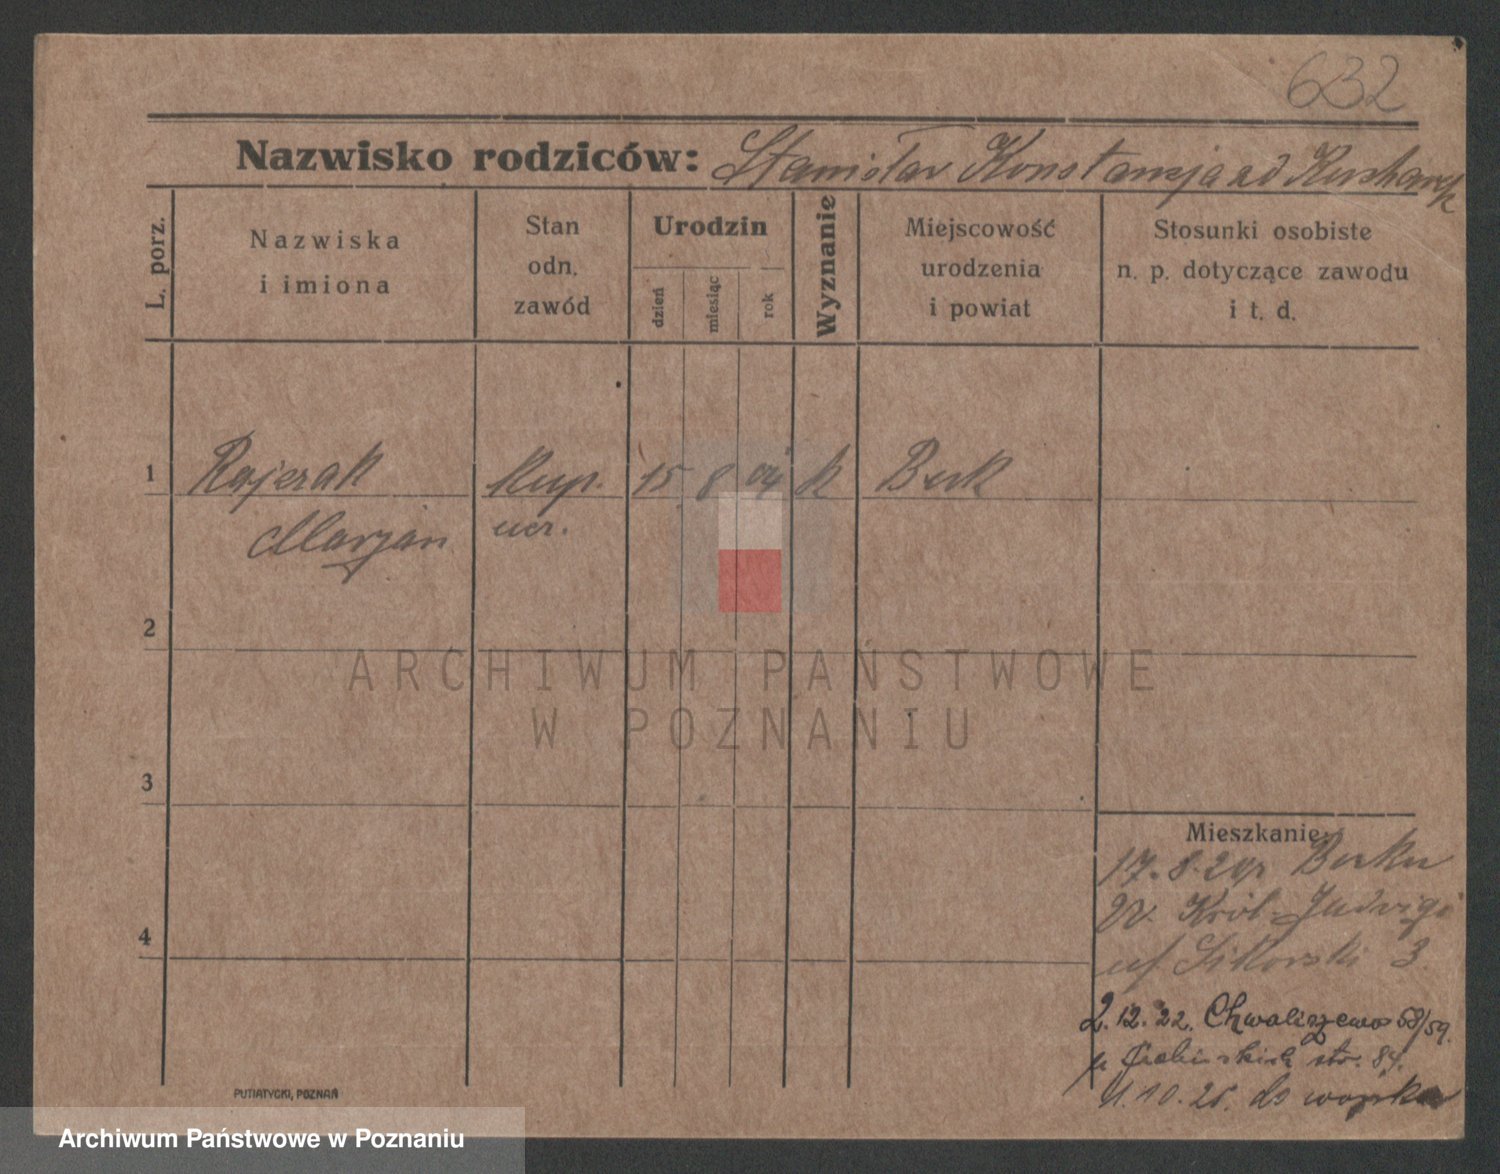 632
Nazwisko rodziców: Stanisław Konstancja zd Kucharek
L. porz.
Nazwiska
i imiona
Stan
odn.
zawód
Urodzin
dzień
miesiąc
rok
Wyznanie
Miejscowość
urodzenia
i powiat
Stosunki osobiste
n. p. dotyczące zawodu
i t. d.
1 Rajczak Kup. 15 8 04 k Buk
Marjan ucz.
2
ARCHIWUM PAŃSTWOWE
W POZNANIU
3
Mieszkanie:
17.8.20 Buku
Król. Jadwigi
Sikorski 3
4
2.12.22. Chwaliszewo 58/59.
u str. 84.
1.10.25. do wojska
PUTIATYCKI, POZNAŃ
Archiwum Państwowe w Poznaniu